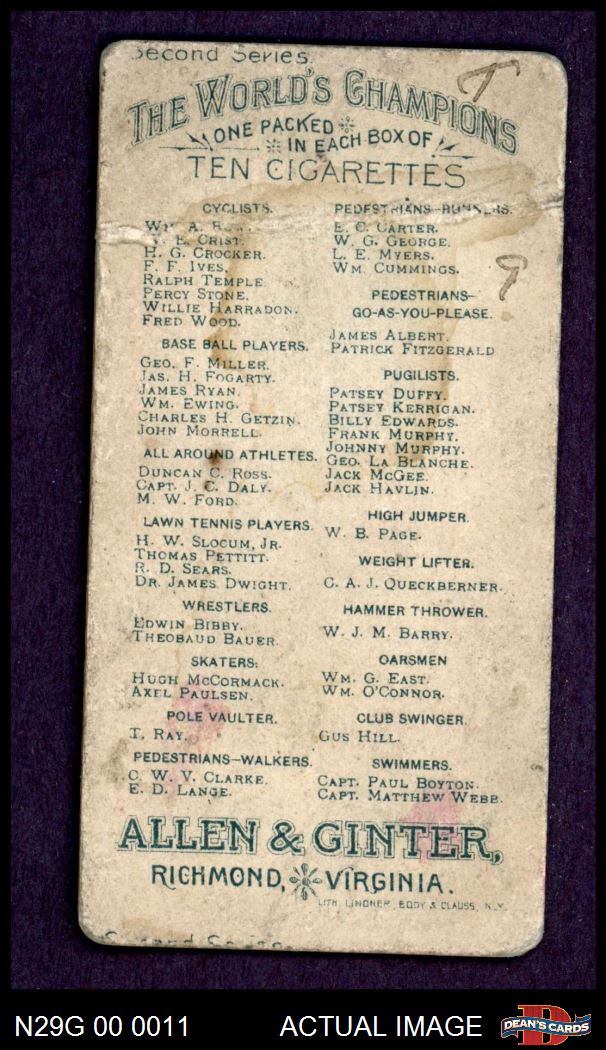 Second Series.
THE WORLD'S CHAMPIONS
ONE PACKED
IN EACH BOX OF
TEN CIGARETTES
CYCLISTS.
WM. A.
E. CRIST.
H. G. CROCKER.
F. F. IVES.
RALPH TEMPLE.
PERCY STONE.
WILLIE HARRADON.
FRED WOOD.
BASE BALL PLAYERS.
GEO. F. MILLER.
JAS. H. FOGARTY.
JAMES RYAN.
WM. EWING.
CHARLES H. GETZIN.
JOHN MORRELL.
ALL AROUND ATHLETES.
DUNCAN C. ROSS.
CAPT. J. C. DALY.
M. W. FORD.
LAWN TENNIS PLAYERS.
H. W. SLOCUM, JR.
THOMAS PETTITT.
R. D. SEARS.
DR. JAMES DWIGHT.
WRESTLERS.
EDWIN BIBBY.
THEOBAUD BAUER.
SKATERS:
HUGH MCCORMACK.
AXEL PAULSEN.
POLE VAULTER.
T. RAY.
PEDESTRIANS-WALKERS.
C. W. V. CLARKE.
E. D. LANGE.
PEDESTRIANS-RUNNERS.
E. C. CARTER.
W. G. GEORGE.
L. E. MYERS.
WM. CUMMINGS.
PEDESTRIANS-
GO-AS-YOU-PLEASE.
JAMES ALBERT.
PATRICK FITZGERALD
PUGILISTS.
PATSEY DUFFY.
PATSEY KERRIGAN.
BILLY EDWARDS.
FRANK MURPHY.
JOHNNY MURPHY.
GEO. LA BLANCHE.
JACK MCGEE.
JACK HAVLIN.
HIGH JUMPER.
W. B. PAGE.
WEIGHT LIFTER.
C. A. J. QUECKBERNER.
HAMMER THROWER.
W. J. M. BARRY.
OARSMEN
WM. G. EAST.
WM. O'CONNOR.
CLUB SWINGER.
GUS HILL.
SWIMMERS.
CAPT. PAUL BOYTON.
CAPT. MATTHEW WEBB.
ALLEN & GINTER,
RICHMOND, VIRGINIA.
LITH. LINDNER, EDDY & CLAUSS, N.Y.
Second Series
N29G 00 0011
ACTUAL IMAGE
DEAN'S CARDS